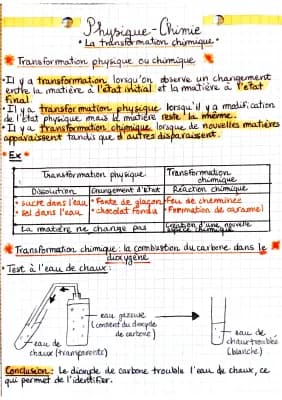 Physique-Chimie
• La transformation chimique •
Transformation physique ou chimique
• Il y a transformation lorsqu'on observe un changement
entre la matière à l'état initial et la matière à l'état
final.
• Il y a transformation physique lorsqu'il y a modification
de l'état physique mais la matière reste la même.
• Il y a transformation chimique lorsque de nouvelles matières
apparaissent tandis que d'autres disparaissent.
• Ex
Transformation physique
Transformation
chimique
Dissolution
Changement d'état
Réaction chimique
• sucre dans l'eau
• sel dans l'eau
• Fonte de glaçon
• chocolat fondu
• Feu de cheminée
• Formation de caramel
La matière ne change pas
Création d'une nouvelle
espèce chimique
Transformation chimique : la combustion du carbone dans le
dioxygène
• Test à l'eau de chaux :
eau gazeuse
(contient du dioxyde
de carbone)
eau de
chaux (transparente)
eau de
chaux troublée
(blanche)
Conclusion : Le dioxyde de carbone trouble l'eau de chaux, ce
qui permet de l'identifier.